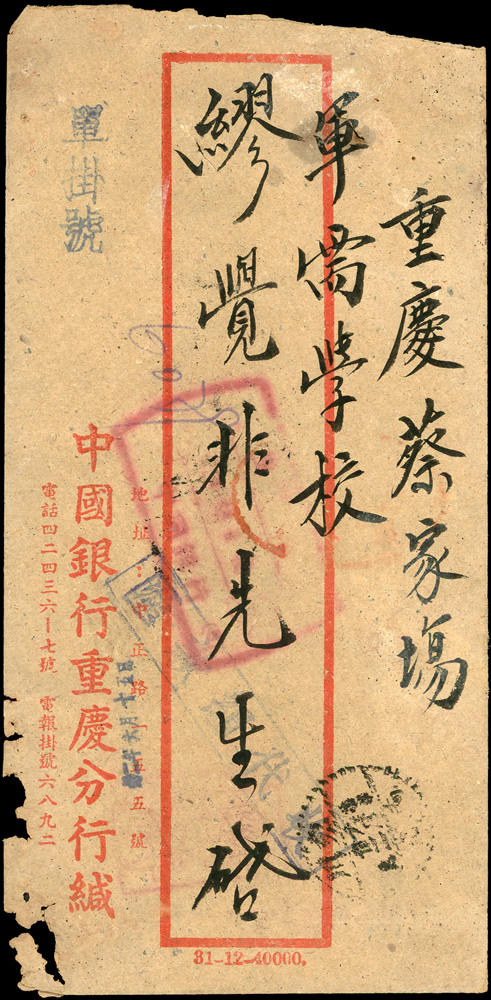 重慶蔡家場
軍需學校
繆覺非先生啓
地址：中正路一五五號
中國銀行重慶分行緘
電話四二四三六—七號 電報掛號六八九二
單掛號
31-12-40000.